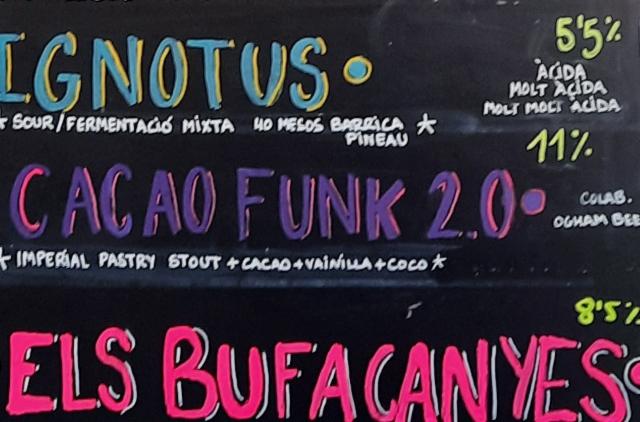 IGNOTUS
5'5%
ÀCIDA
MOLT ÀCIDA
MOLT MOLT ÀCIDA
* SOUR/FERMENTACIÓ MIXTA 40 MESOS BARRICA *
PINEAU
11%
CACAO FUNK 2.0
COLAB.
OGHAM BEE
* IMPERIAL PASTRY STOUT + CACAO + VAINILLA + COCO *
8'5%
ELS BUFACANYES